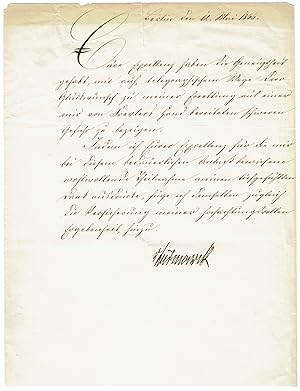 Berlin den 12. Mai 1866.
Eure Exzellenz haben die Geneigtheit
gehabt, mir auf telegraphischem Wege Ihre
Glückwünsche zu meiner Errettung aus einer
mir von Frevlers Hand bereiteten schweren
Gefahr zu bezeigen.
Indem ich Eurer Exzellenz für die mir
bei diesem bedauerlichen Anlaß bewiesene
wohlwollende Theilnahme meinen tiefgefühlten
Dank ausdrücke, füge ich demselben zugleich
die Versicherung meiner hochachtungsvollen
Ergebenheit hinzu.